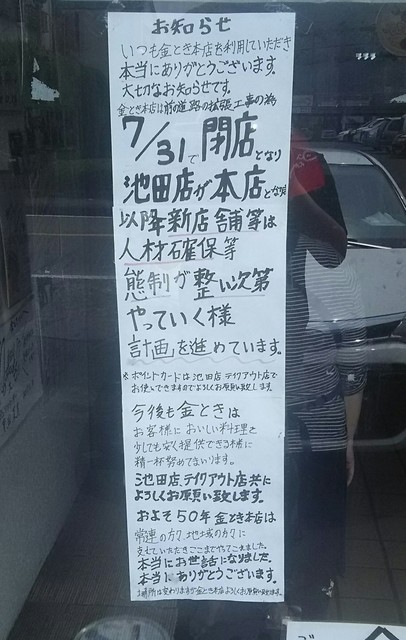 お知らせ
いつも金とき本店を利用していただき
本当にありがとうございます。
大切なお知らせです。
金とき本店は前の道路の拡張工事の為
7/31で閉店となり
池田店が本店となり
以降新店舗等は
人材確保等
態制が整い次第
やっていく様
計画を進めています。
※ポイントカードは池田店テイクアウト店で
お使いできますのでよろしくお願い致します
今後も金ときは
お客様においしい料理を
少しでも安く提供できる様に
精一杯努めてまいります。
池田店、テイクアウト店共に
よろしくお願い致します。
およそ50年金とき本店は
常連の方々、地域の方々に
支えていただきここまでやってこれました。
本当にお世話になりました。
本当にありがとうございます。
場所は変わりますが金とき本店よろしくお願い致します。